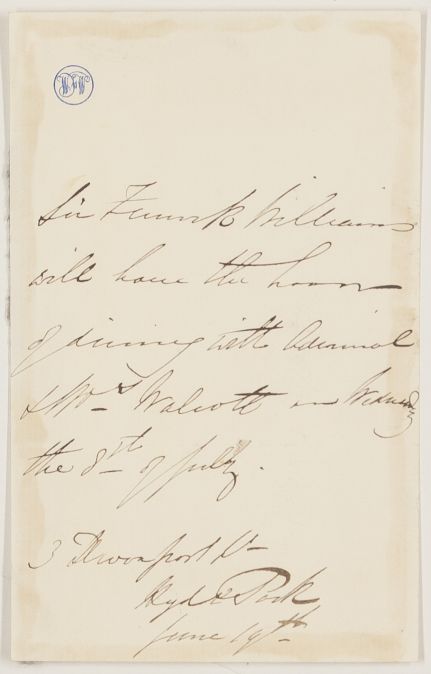 Sir Fenwick Williams
will have the honor
of dining with Admiral
& Mrs Walcott on Wednesday
the 8st of July.
3 Devonport St
Hyde Park
June 19th